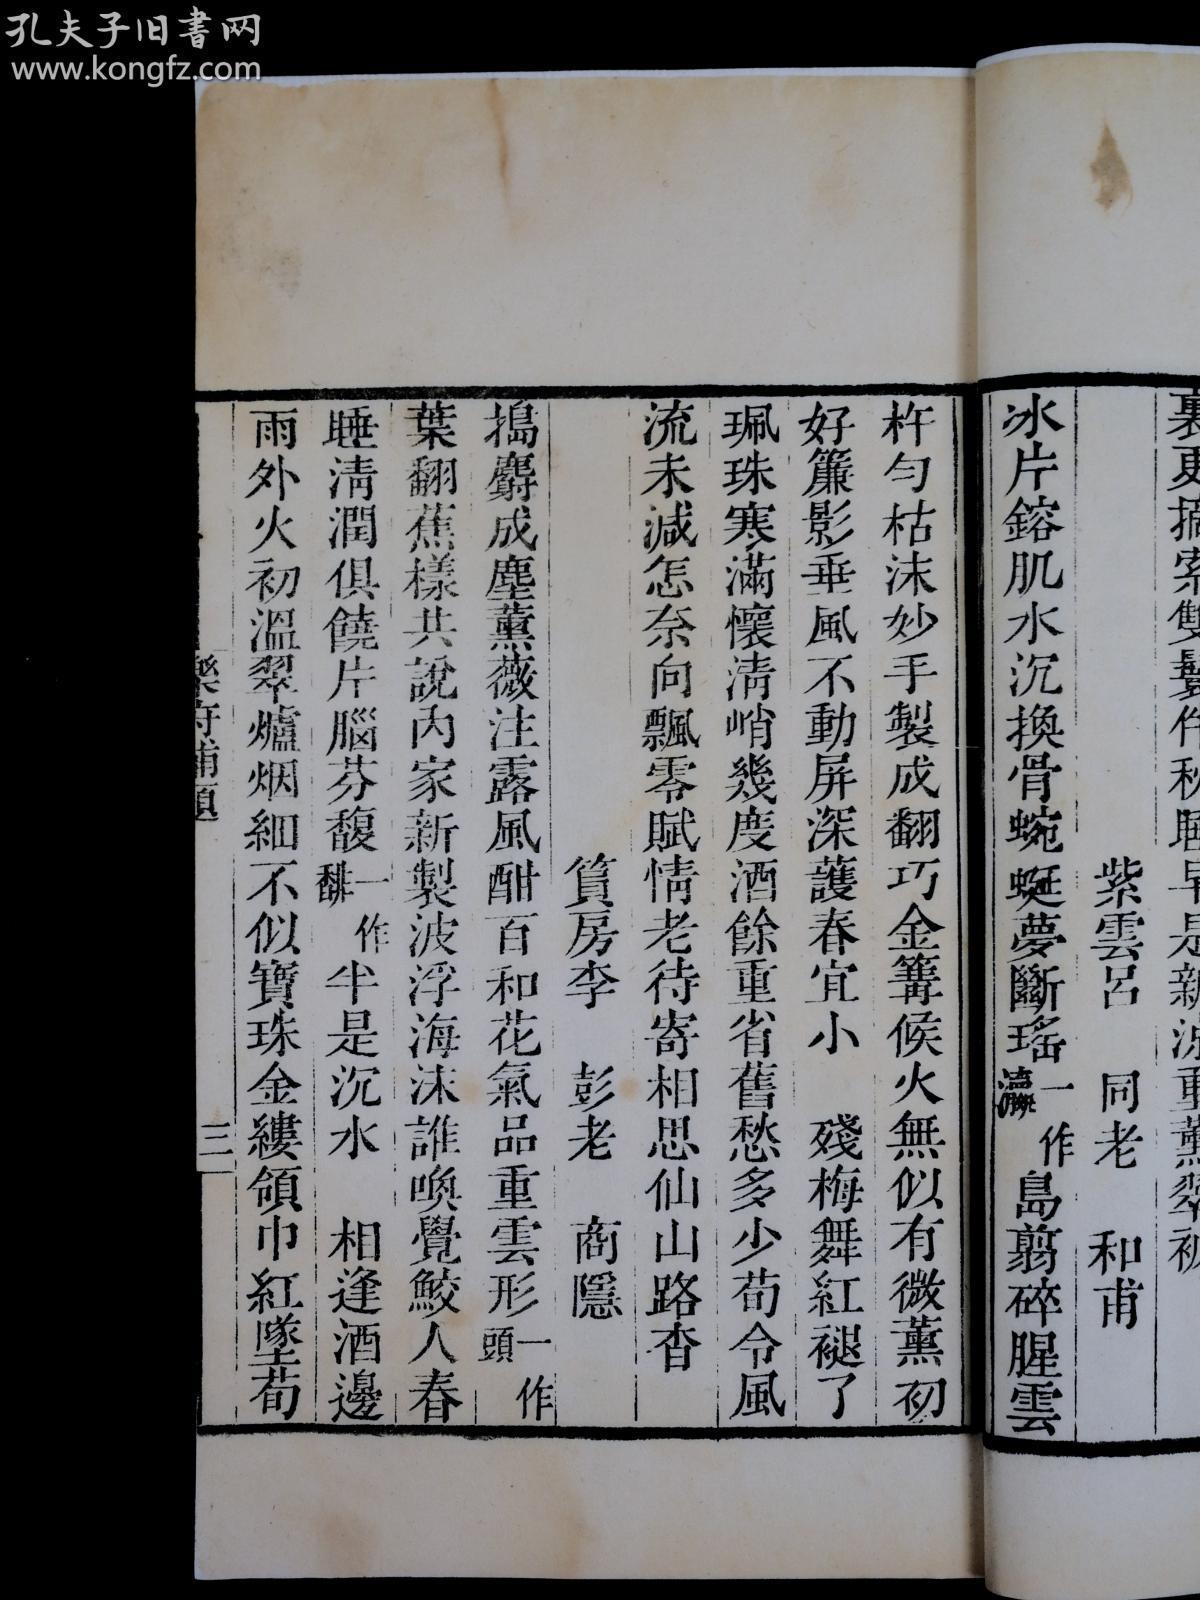 孔夫子旧書网
www.kongfz.com
裏更摘索雙鬟伴秋睡早是新涼重薰翠被
紫雲呂 同老 和甫
冰片鎔肌水沉換骨蜿蜒夢斷瑤一作瀛島翦碎腥雲
杵勻枯沫妙手製成翻巧金篝候火無似有微薰初
好簾影垂風不動屏深護春宜小 殘梅舞紅褪了
珮珠寒滿懷淸峭幾度酒餘重省舊愁多少荀令風
流未減怎奈向飄零賦情老待寄相思仙山路杳
篔房李 彭老 商隱
搗麝成塵薰薇注露風酣百和花氣品重雲形一作頭
葉翻蕉樣共說內家新製波浮海沫誰喚覺鮫人春
睡淸潤俱饒片腦芬馥一作馡半是沉水 相逢酒邊
雨外火初溫翠爐烟細不似寶珠金縷領巾紅墜荀
樂府補題
三